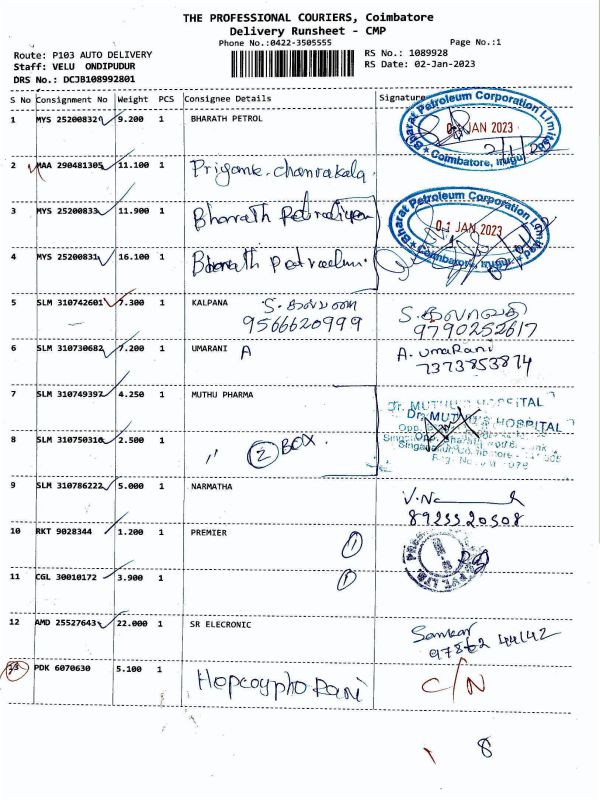 THE PROFESSIONAL COURIERS, Coimbatore
Delivery Runsheet - CMP
Phone No.:0422-3505555 Page No.:1
Route: P103 AUTO DELIVERY RS No.: 1089928
Staff: VELU ONDIPUDUR RS Date: 02-Jan-2023
DRS No.: DCJB108992801
S No Consignment No Weight PCS Consignee Details Signature
1 MYS 252008329 9.200 1 BHARATH PETROL
Bharat Petroleum Corporation Limited
JAN 2023
Coimbatore, Irugur
2 MAA 290481305 11.100 1 Priyanke. chanrakala
3 MYS 25200833 11.900 1 Bharath
Bharat Petroleum Corporation Limited
01 JAN 2023
Coimbatore, Irugur
4 MYS 25200831 16.100 1 Bharath
5 SLM 310742601 7.300 1 KALPANA S. கல்பனா S. கலாவதி
9566620999 9790252617
6 SLM 310730682 7.200 1 UMARANI A A. UmaRani
7373853874
7 SLM 310749397 4.250 1 MUTHU PHARMA
Dr. MUTHU'S HOSPITAL
8 SLM 310750316 2.500 1 〃 2 BOX.
9 SLM 310786222 5.000 1 NARMATHA
8925520508
10 RKT 9028344 1.200 1 PREMIER 1
11 CGL 30010172 3.900 1 1
12 AMD 25527643 22.000 1 SR ELECRONIC Sankar
13 PDK 6070630 5.100 1 Rani C/N
8